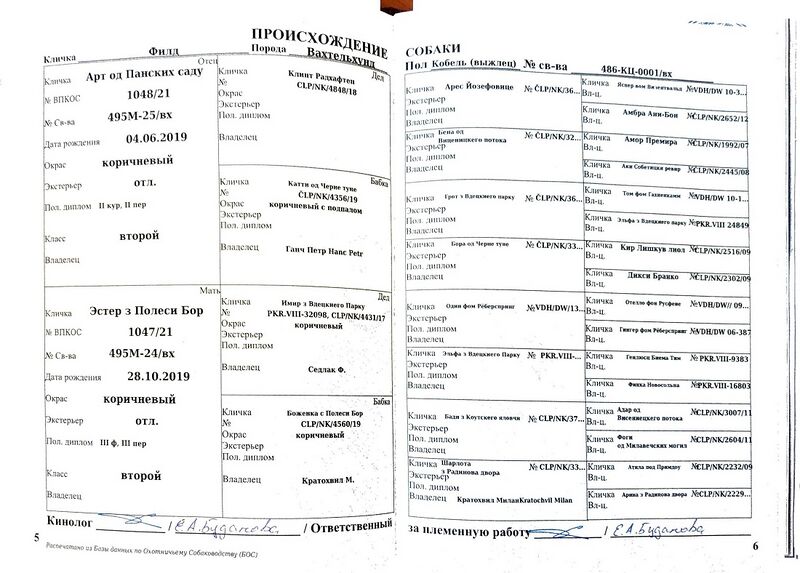 ПРОИСХОЖДЕНИЕ
Кличка Филд Порода Вахтельхунд
Отец
Кличка Арт од Панских саду
№ ВПКОС 1048/21
№ Св-ва 495М-25/вх
Дата рождения 04.06.2019
Окрас коричневый
Экстерьер отл.
Пол. диплом II кур, II пер
Класс второй
Владелец
Мать
Кличка Эстер з Полеси Бор
№ ВПКОС 1047/21
№ Св-ва 495М-24/вх
Дата рождения 28.10.2019
Окрас коричневый
Экстерьер отл.
Пол. диплом III ф, III пер
Класс второй
Владелец
Дед
Кличка Клинт Радхафтен
№ CLP/NK/4848/18
Окрас
Экстерьер
Пол. диплом
Владелец
Бабка
Кличка Катти од Черне туне
№ ČLP/NK/4356/19
Окрас коричневый с подпалом
Экстерьер
Пол. диплом
Владелец Ганч Петр Hanc Petr
Дед
Кличка Имир з Влецкиего Парку
№ PKR.VIII-32098, CLP/NK/4431/17
Окрас коричневый
Экстерьер
Пол. диплом
Владелец Седлак Ф.
Бабка
Кличка Боженка с Полеси Бор
№ CLP/NK/4560/19
Окрас коричневый
Экстерьер
Пол. диплом
Владелец Кратохвил М.
Кинолог / Е.А.Буданова / Ответственный
5
Распечатано из Базы данных по Охотничьему Собаководству (БОС)
СОБАКИ
Пол Кобель (выжлец) № св-ва 486-КЦ-0001/вх
Кличка Арес Йозефовице № ČLP/NK/36...
Экстерьер
Пол. диплом
Владелец
Кличка Бена од Виценицкого потока № ČLP/NK/32...
Экстерьер
Пол. диплом
Владелец
Кличка Грот з Вдецкиего парку № ČLP/NK/36...
Экстерьер
Пол. диплом
Владелец
Кличка Бора од Черне туне № ČLP/NK/33...
Экстерьер
Пол. диплом
Владелец
Кличка Один фом Рёберспринг № VDH/DW/13...
Экстерьер
Пол. диплом
Владелец
Кличка Эльфа з Вдецкиего Парку № PKR.VIII-...
Экстерьер
Пол. диплом
Владелец
Кличка Бади з Коутского яловчи № CLP/NK/37...
Экстерьер
Пол. диплом
Владелец
Кличка Шарлота з Радинова двора № CLP/NK/33...
Экстерьер
Пол. диплом
Владелец Кратохвил МиланKratochvil Milan
Кличка Яспер вом Визентвальд №VDH/DW 10-3...
Вл-ц.
Кличка Амбра Анн-Бои №CLP/NK/2652/12
Вл-ц.
Кличка Амор Премира №CLP/NK/1992/07
Вл-ц.
Кличка Аки Соботицки ревир №CLP/NK/2445/08
Вл-ц.
Кличка Том фом №VDH/DW 10-1...
Вл-ц.
Кличка Эльфа з Вдецкиего парку №PKR.VIII 24849
Вл-ц.
Кличка Кир Лишкув лиол №CLP/NK/2516/09
Вл-ц.
Кличка Дикси Бранко №CLP/NK/2302/09
Вл-ц.
Кличка Отелло фом Русфене №VDH/DW// 09...
Вл-ц.
Кличка Гингер фом Рёберспринг №VDH/DW 06-387
Вл-ц.
Кличка Биема Тим № PKR.VIII-9383
Вл-ц.
Кличка Финка Новосольна №PKR.VIII-16803
Вл-ц.
Кличка Адар од Висениецкого потока №CLP/NK/3007/11
Вл-ц.
Кличка Фоги од Милавечских могил №CLP/NK/2604/11
Вл-ц.
Кличка Атила под Примдоу №CLP/NK/2232/09
Вл-ц.
Кличка Арина з Радинова двора №CLP/NK/2229...
Вл-ц.
за племенную работу / Е.А.Буданова
6